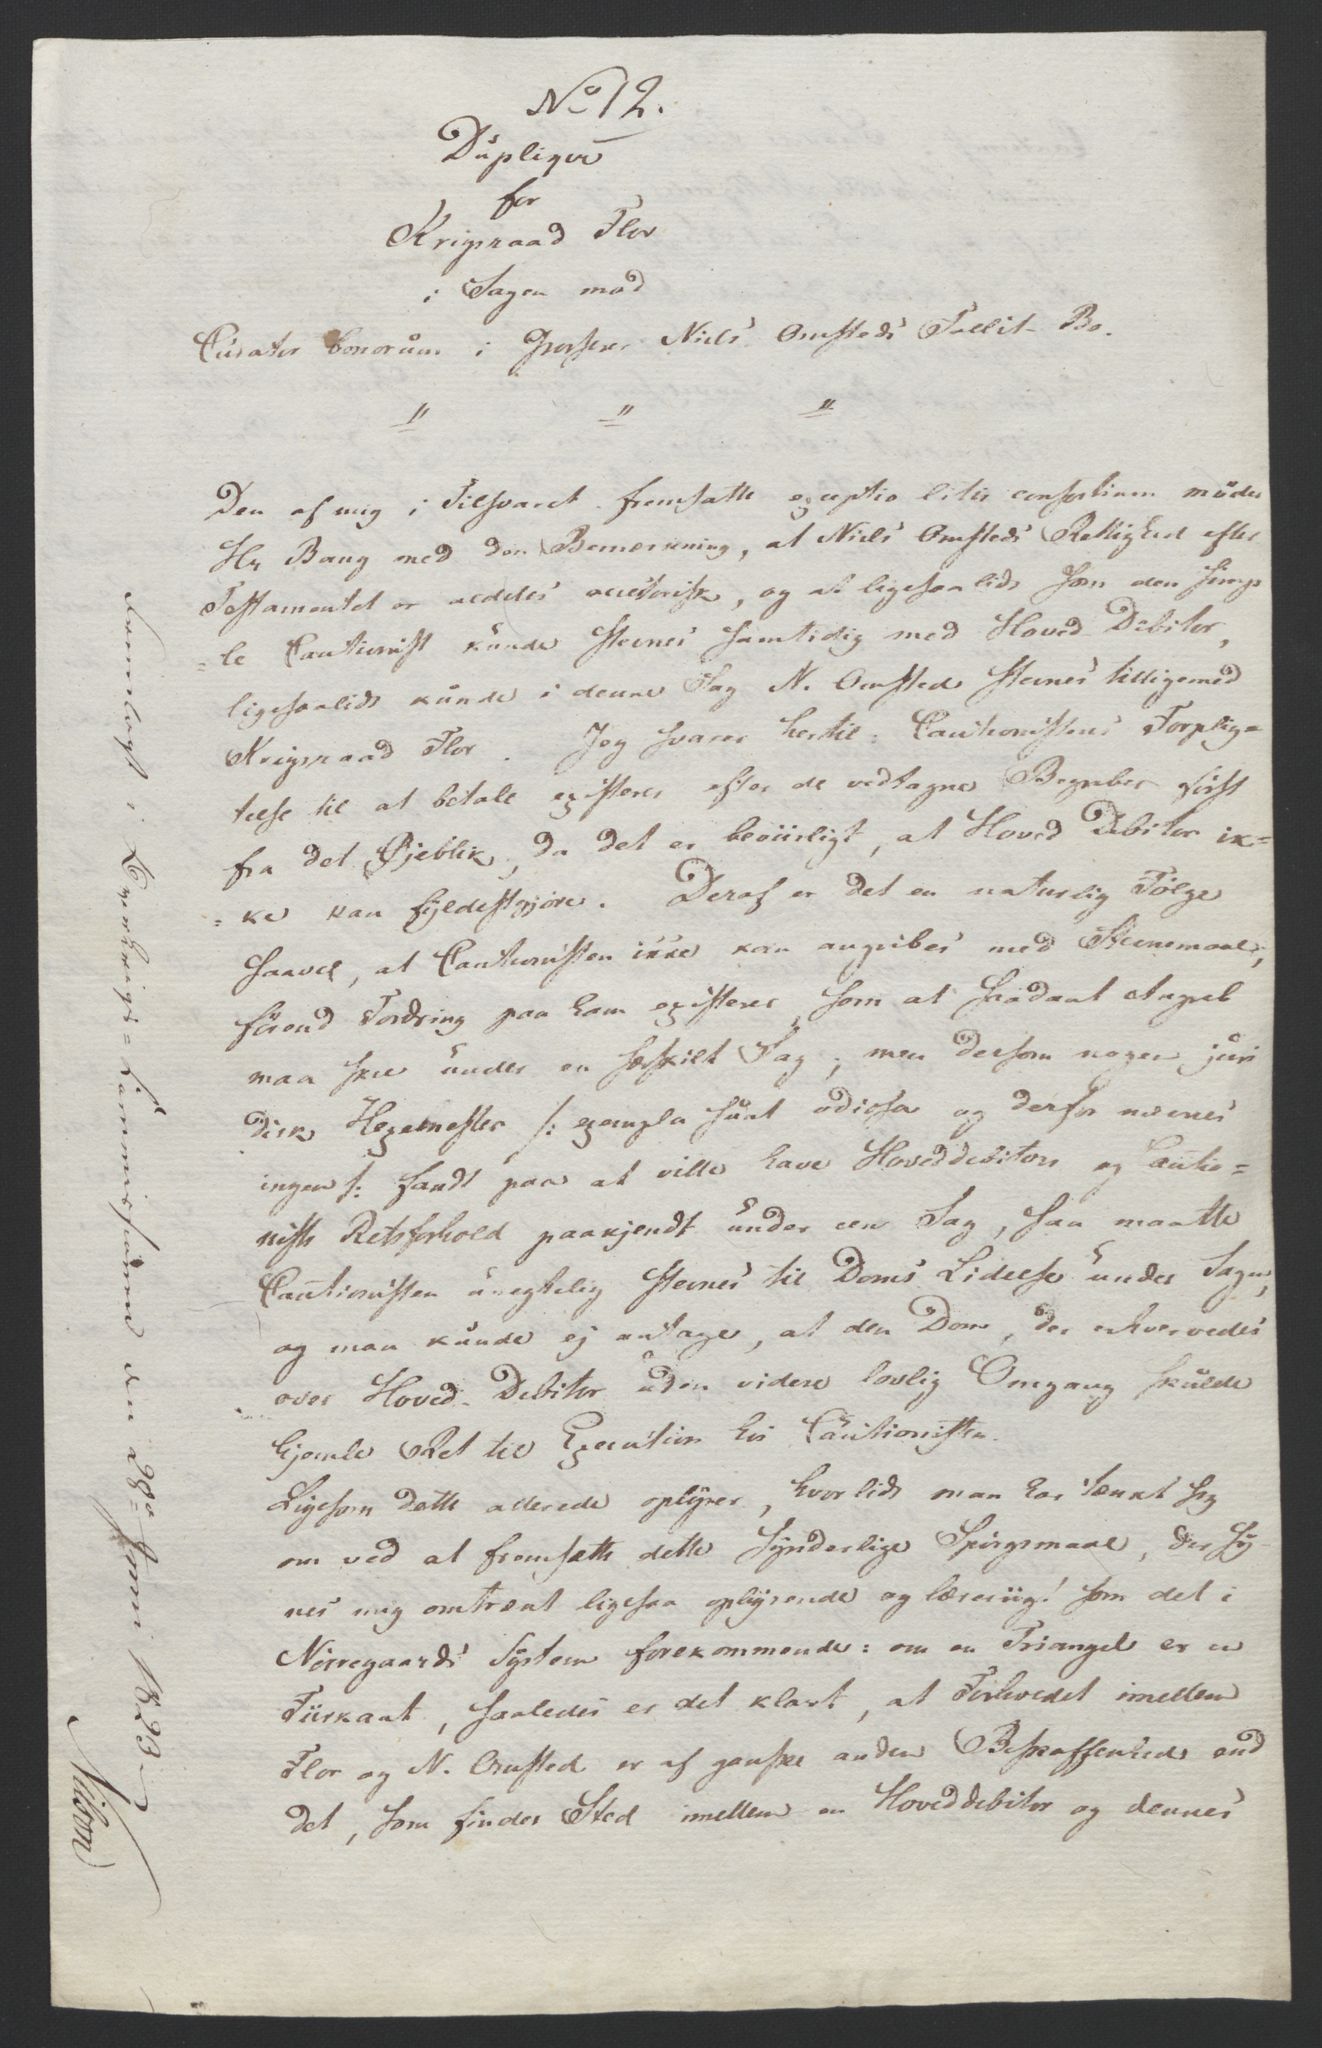 No 12.
Duplique
for
Krigsraad Flor
i Sagen mod
Curator bonorum i Grosserer Niels Omsteds Fallit-Bo.
" " "
Den af mig i Tilsvaret fremsatte exceptio litis consortium möder
Hr Bang med den Bemærkning, at Niels Omsteds Rettighed efter
Testamentet er aldeles accessorisk, og at ligesaalidt som den simp
=le Cautionist kunde stevnes samtidig med Hoved-Debitor,
ligesaalidt kunde i denne Sag N. Omsted stevnes tilligemed
Krigsraad Flor. Jeg svarer hertil: Cautionistens Forplig=
telse til at betale existerer efter de vedtagne Begreber först
fra det Øjeblik, da det er beviisligt, at Hoved Debitor ik=
=ke kan fyldestgjöre. Deraf er det en naturlig Fölge
saavel, at Cautionisten ikke kan angribes med Stevnemaal,
förend Fordring paa ham existerer, som at saadant Angreb
maa skee under en særskilt Sag; men dersom nogen juri
disk Hexemester /: exempla sunt odiosa og derfor nævnes
ingen :/ fandt paa at ville have Hoveddebitors og Cautio=
nists Retsforhold paakjendt under een Sag, saa maatte
Cautionisten unegtelig stevnes til Doms Lidelse under Sagen,
og man kunde ej antage, at den Dom, der erhvervedes
over Hoved-Debitor uden videre lovlig Omgang skulde
hjemle Ret til Execution hos Cautionisten.
Ligesom dette allerede oplyser, hvor lidt man har tænkt sig
om ved at fremsætte dette synderlige Spörgsmaal, der sy-
nes mig omtrent ligesaa oplysende og lærerig! som det i
Nörregaards System forekommende: om en Triangel er en
Fiirkant, saaledes er det klart, at Forholdet imellem
Flor og N. Omsted er af ganske anden Beskaffenhed end
det, som finder Sted imellem en Hoveddebitor og dennes
Fremlagt i Overkrigs=Commissionen den 28de Juni 1823
Nilson